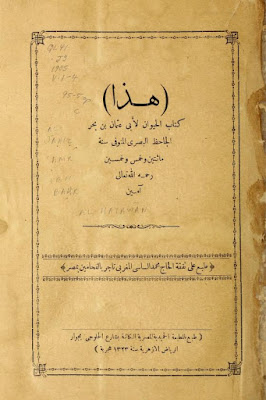 (هذا)
كتاب الحيوان لأبي عثمان بن بحر
الجاحظ البصرى المتوفى سنة
مائتين وخمس وخمسين
رحمه الله تعالى
آمين
﴿ طبع على نفقة الحاج محمد الساسى المغربى تاجر بالفحامين بمصر ﴾
( طبع بالمطبعة الحميدية المصرية الكائنة بشارع الحلوجى بجوار
الرياض الازهرية سنة ١٣٢٣ هجرية )